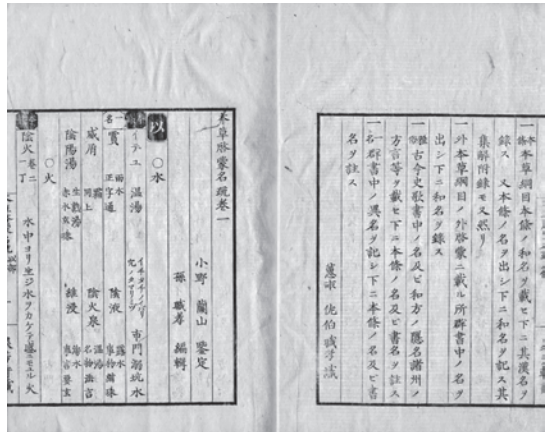 一 本草綱目本條ノ和名ヲ載セ下ニ其漢名ヲ
錄ス 又本條ノ名ヲ出シ下ニ和名ヲ記ス其
集解附錄モ又然リ
一 外本草綱目ノ外啓蒙ニ載ル所群書中ノ名ヲ
出シ下ニ和名ヲ錄ス
古今史歌書中ノ名及ヒ和方ノ隱名諸州ノ
方言等ヲ載セ下ニ本條ノ名及ヒ書名ヲ註ス
一名 群書中ノ異名ヲ記シ下ニ本條ノ名及ヒ書
名ヲ註ス
蕙 佐伯
本草啓蒙名疏卷一
小野蘭山 鑒定
孫 職孝 編輯
以
○水
イテユ 温湯
屯門溺坑水
一名 雨水 正字通
陰液 露水 事物紺珠
威屑 霜 同上
陰火泉 温湯 名物法言
陰陽湯 生熟湯
○火
陰火 卷二 一丁
水中ヨリ生ジ水ヲカクレバ益モエル火